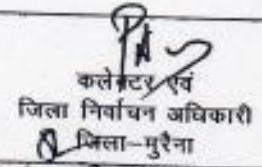 कलेक्टर एवं
जिला निर्वाचन अधिकारी
जिला-मुरैना